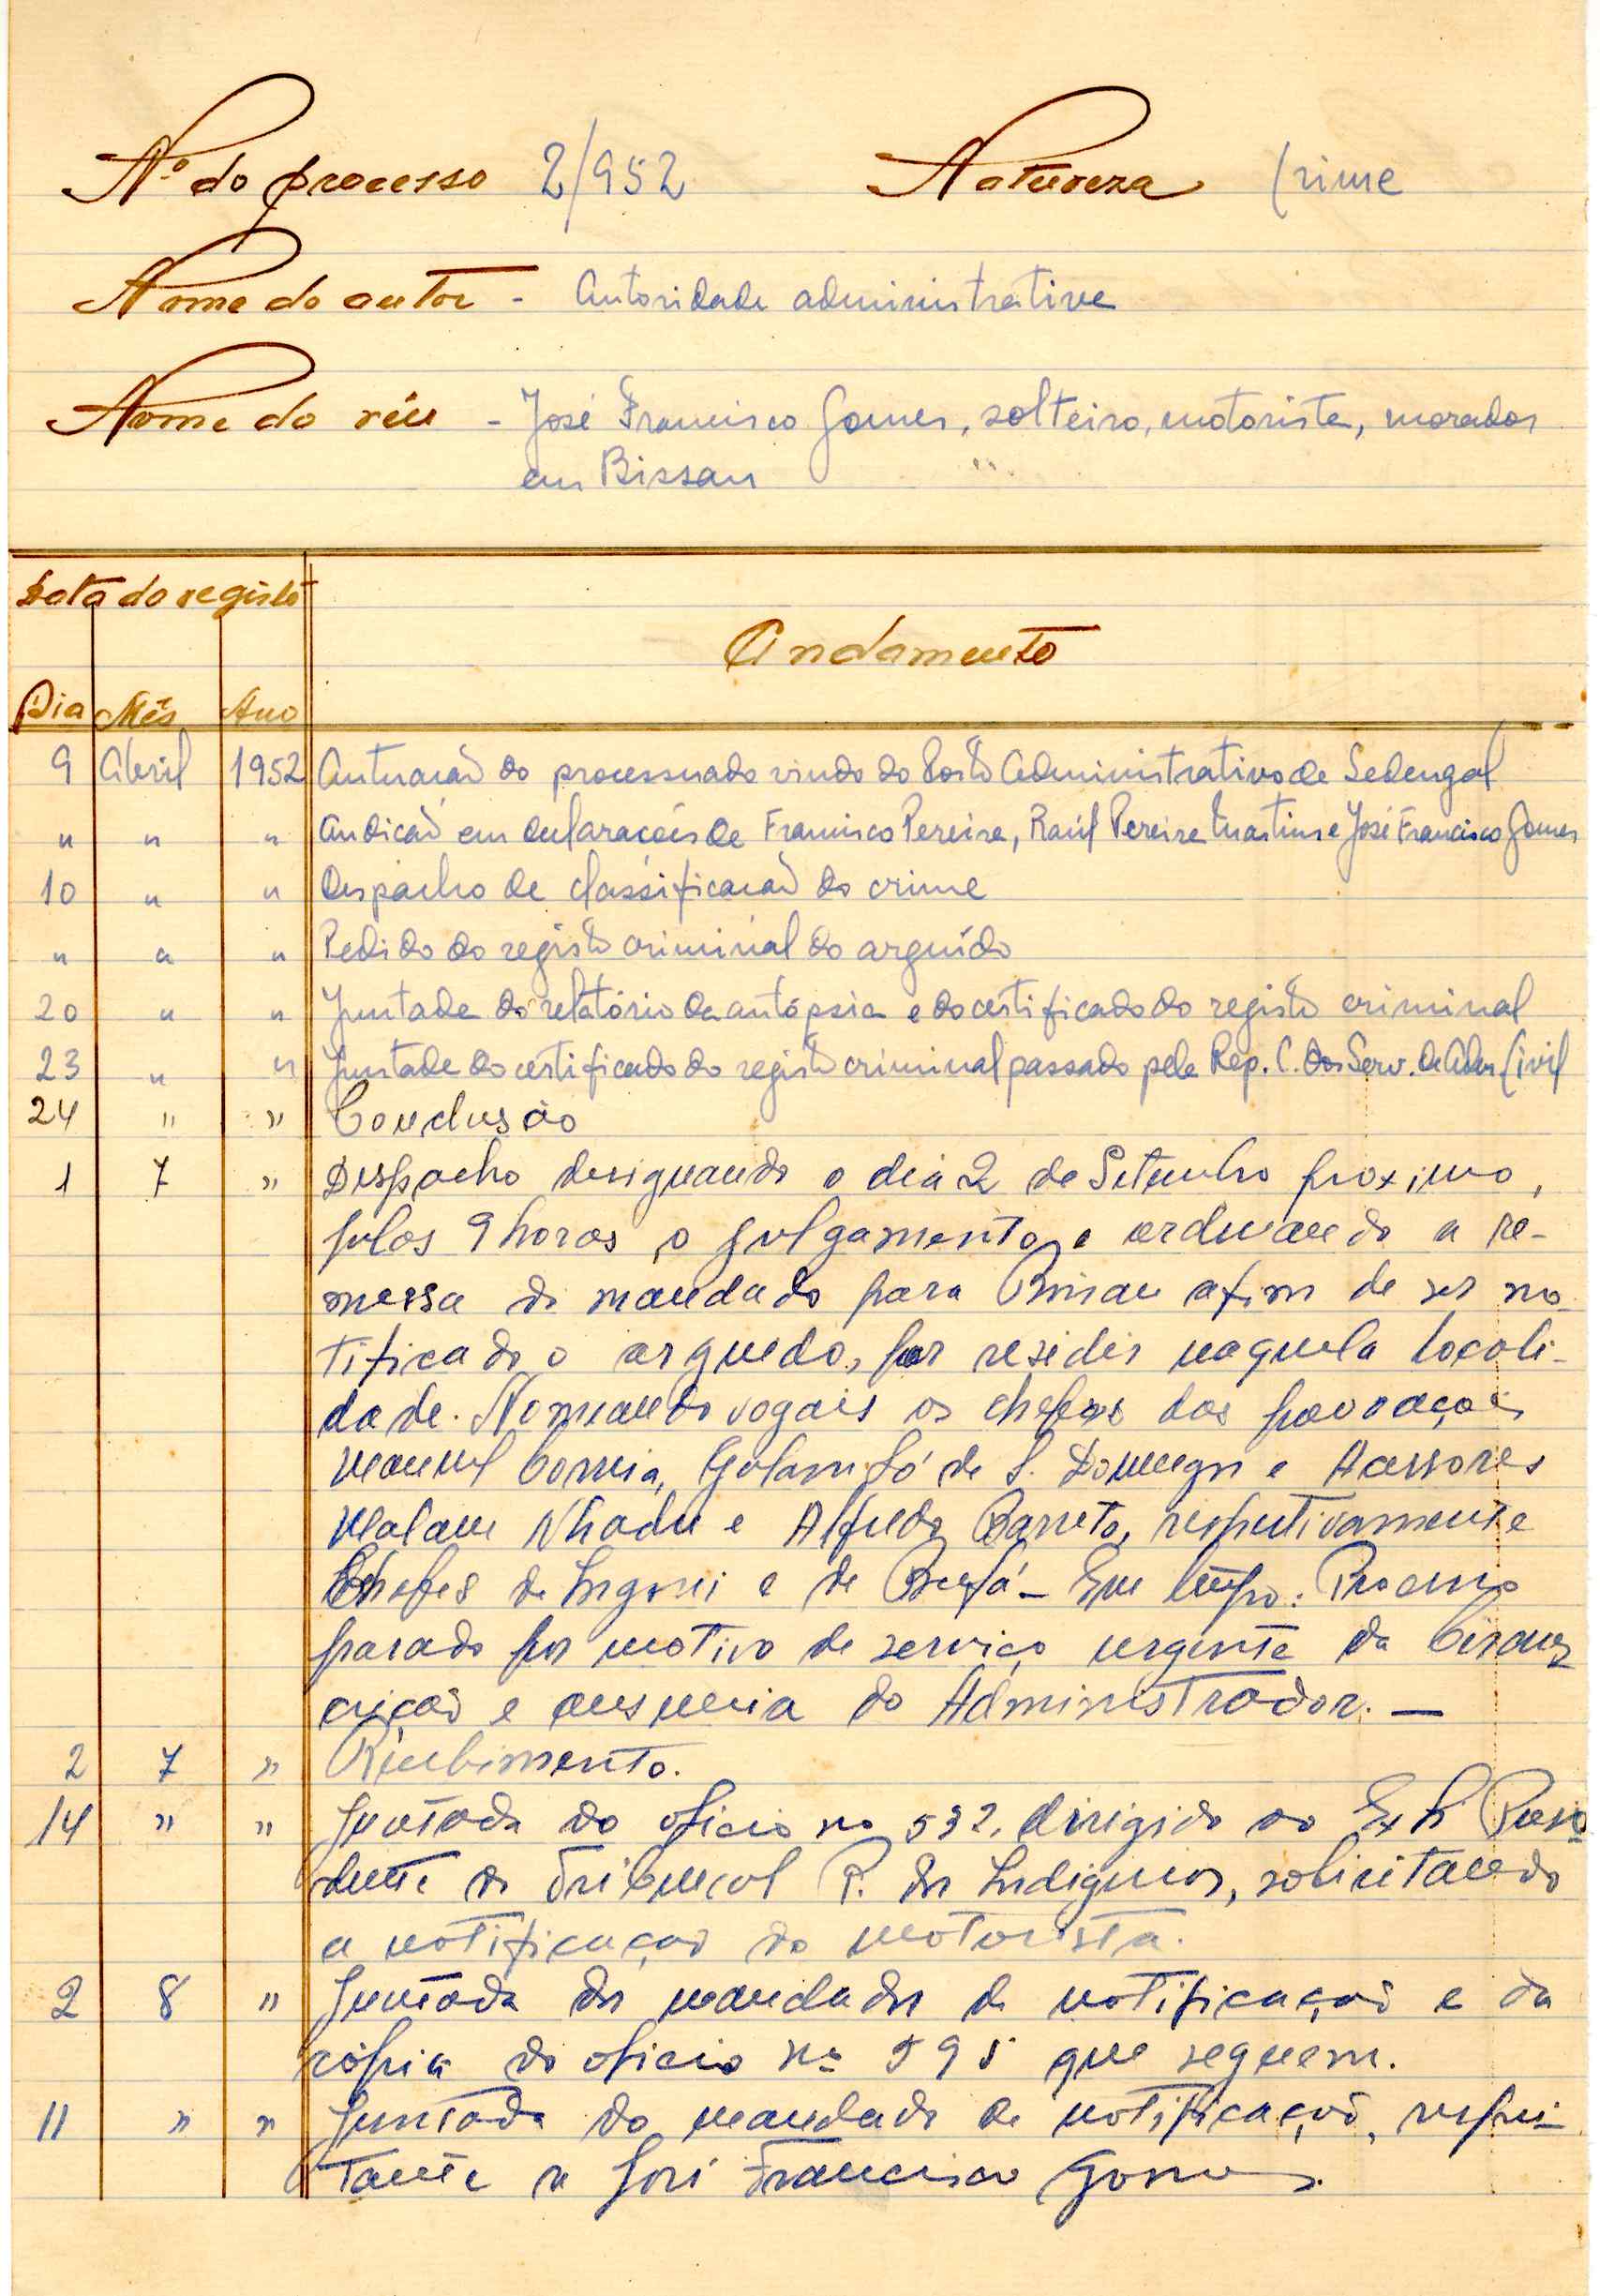 Nº do processo 2/952 Natureza Crime
Nome do autor - Autoridade administrativa
Nome do réu - José Francisco Gomes, solteiro, motorista, morador
em Bissau
Data do registo
Andamento
Dia Mês Ano
9 Abril 1952 Autuação do processado vindo do Posto Administrativo de Sedengal
" " " Audição em declarações de Francisco Pereira, Raúl Pereira Martins e José Francisco Gomes
10 " " Despacho de classificação do crime
" " " Pedido do registo criminal do arguído
20 " " Juntada do relatório da autópsia e do certificado do registo criminal
23 " " Juntada do certificado do registo criminal passado pela Rep. C. dos Serv. de Adm. Civil
24 " " Conclusão
1 7 " Despacho designando o dia 2 de Setembro proximo,
pelas 9 horas o julgamento e ordenando a re-
messa do mandado para Bissau afim de ser no-
tificado o arguido, por residir naquela locali-
dade. Nomeando vogais os chefes das povoações
Manuel Correia, de S. Domingos e Assessores
Malam e Alfredo Barreto, respectivamente
Chefes de e de - Em tempo: Processo
parado por motivo de serviço urgente da Circuns
crição e ausencia do Administrador. -
2 7 " Recebimento.
14 " " Juntada do oficio nº 532, dirigido ao Exº Sr Presi
dente do Tribunal P. dos Indigenas, solicitando
a notificação do motorista.
2 8 " Juntada dos mandados de notificação e da
cópia do oficio nº 595 que seguem.
11 " " Juntada do mandado de notificação, respei-
tante a José Francisco Gomes.